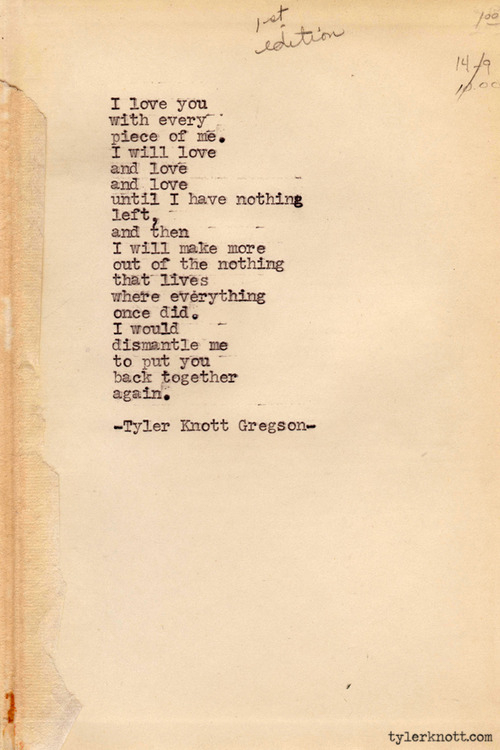 1st
edition
14/9
10.00
I love you
with every
piece of me.
I will love
and love
and love
until I have nothing
left,
and then
I will make more
out of the nothing
that lives
where everything
once did.
I would
dismantle me
to put you
back together
again.
-Tyler Knott Gregson-
tylerknott.com